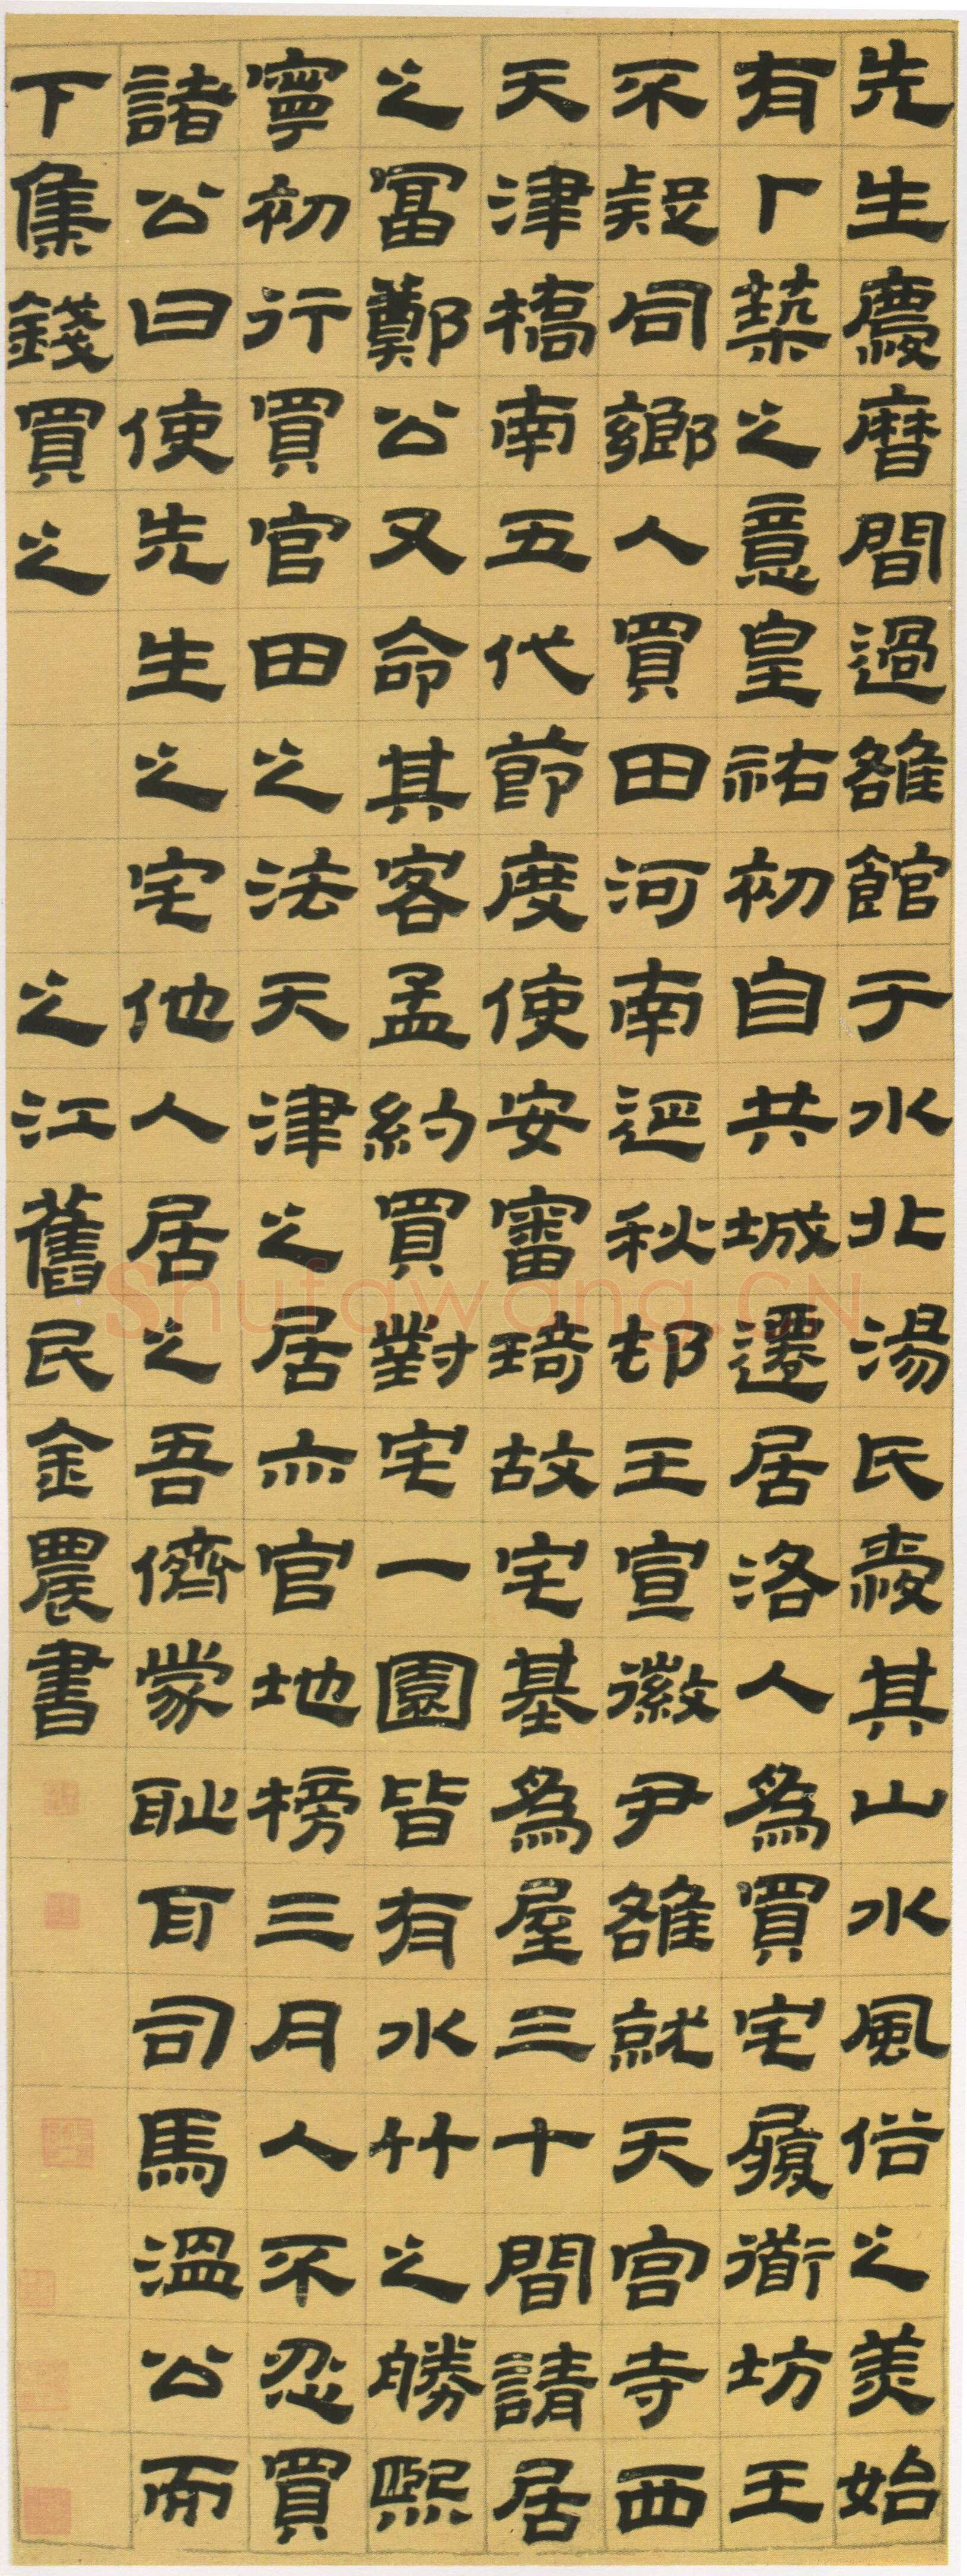 先生慶曆間過雒館于水北湯氏愛其山水風俗之美始
有卜築之意皇祐初自共城遷居洛人為買宅履衜坊王
不疑同鄉人買田河南延秋邨王宣徽尹雒就天宮寺西
天津橋南五代節度使安審琦故宅基為屋三十間請居
之富鄭公又命其客孟約買對宅一園皆有水竹之勝熙
寧初行買官田之法天津之居亦官地榜三月人不忍買
諸公曰使先生之宅他人居之吾儕蒙耻司馬溫公而
下集錢買之 之江舊民金農書
Shufawang.CN